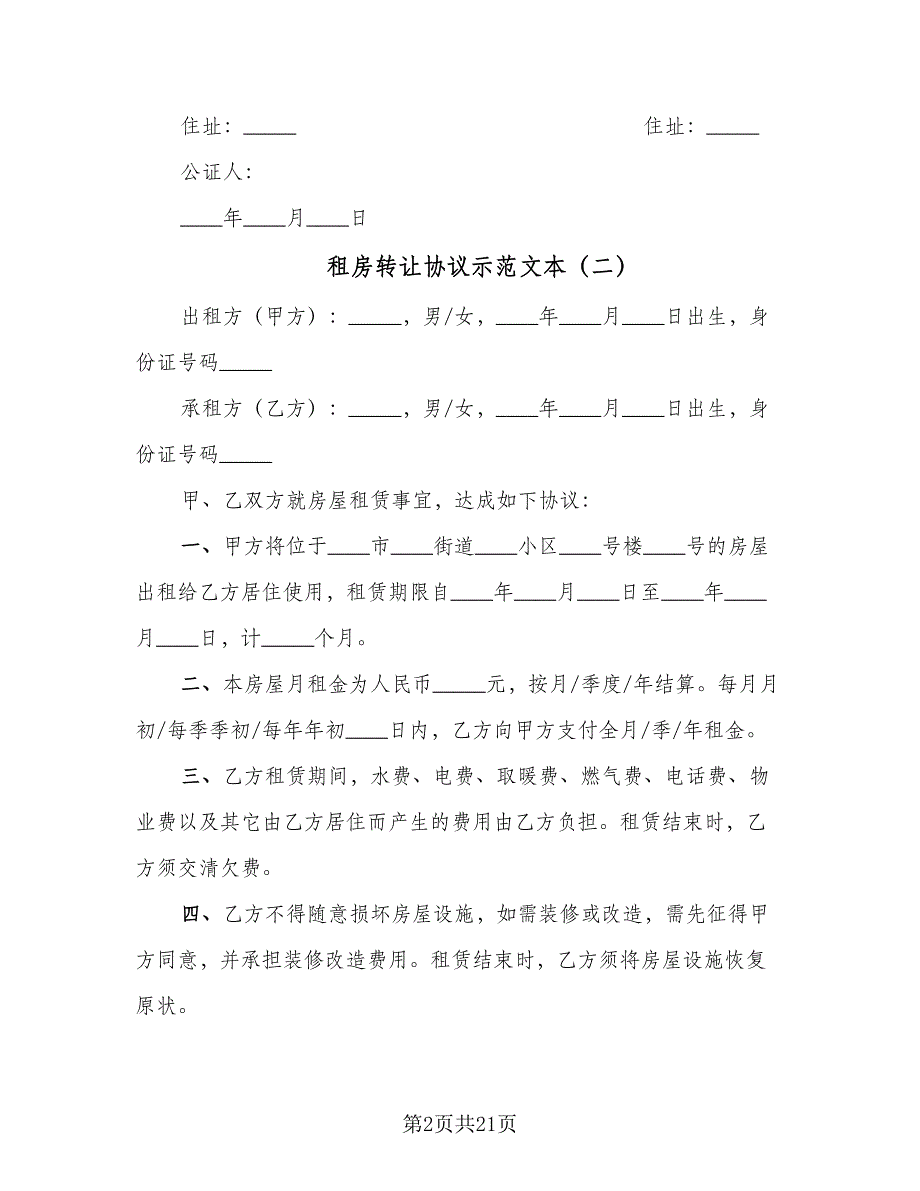 住址：_____ 住址：_____
公证人：
____年____月____日
租房转让协议示范文本（二）
出租方（甲方）：_____，男/女，____年____月____日出生，身
份证号码_____
承租方（乙方）：_____，男/女，____年____月____日出生，身
份证号码_____
甲、乙双方就房屋租赁事宜，达成如下协议：
一、甲方将位于____市____街道____小区____号楼____号的房屋
出租给乙方居住使用，租赁期限自____年____月____日至____年____
月____日，计_____个月。
二、本房屋月租金为人民币_____元，按月/季度/年结算。每月月
初/每季季初/每年年初____日内，乙方向甲方支付全月/季/年租金。
三、乙方租赁期间，水费、电费、取暖费、燃气费、电话费、物
业费以及其它由乙方居住而产生的费用由乙方负担。租赁结束时，乙
方须交清欠费。
四、乙方不得随意损坏房屋设施，如需装修或改造，需先征得甲
方同意，并承担装修改造费用。租赁结束时，乙方须将房屋设施恢复
原状。
第2页共21页